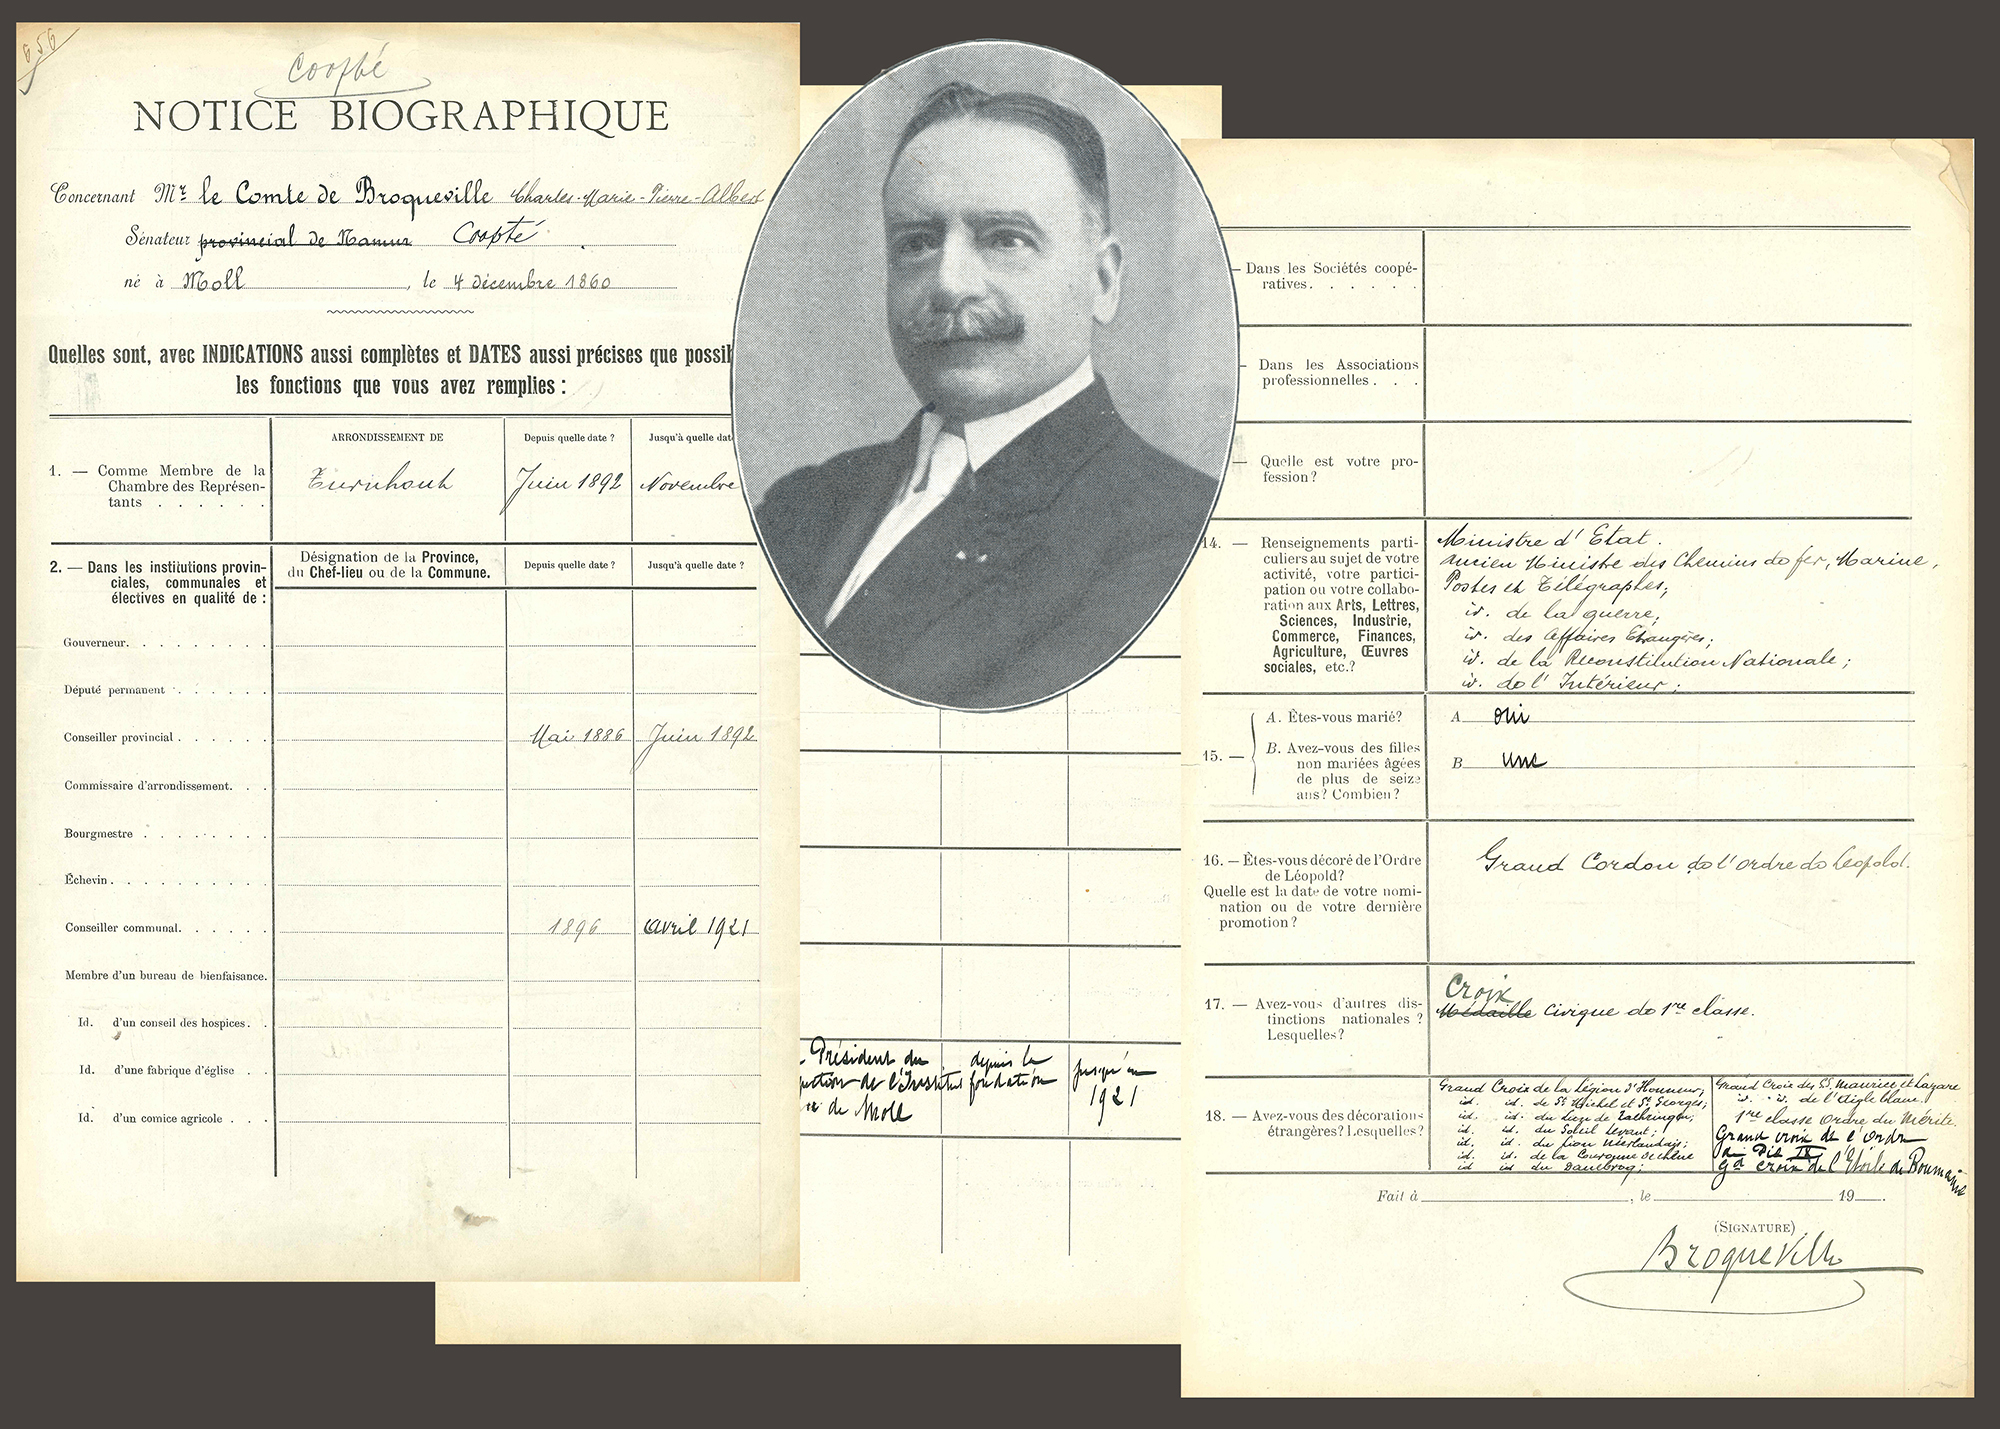 656
Coopté
NOTICE BIOGRAPHIQUE
Concernant Mr le Comte de Broqueville Charles-Marie-Pierre-Albert
Sénateur provincial de Namur Coopté
né à Moll, le 4 décembre 1860
Quelles sont, avec INDICATIONS aussi complètes et DATES aussi précises que possi
les fonctions que vous avez remplies :
ARRONDISSEMENT DE Depuis quelle date ? Jusqu'à quelle dat
1. — Comme Membre de la
Chambre des Représen-
tants . . . . . .
Turnhout Juin 1892 Novembre
2. — Dans les institutions provin-
ciales, communales et
électives en qualité de :
Désignation de la Province,
du Chef-lieu ou de la Commune.
Depuis quelle date ? Jusqu'à quelle date ?
Gouverneur. . . . . . . . .
Député permanent . . . . . .
Conseiller provincial . . . . . . Mai 1886 Juin 1892
Commissaire d'arrondissement. . .
Bourgmestre . . . . . . . .
Échevin . . . . . . . . . .
Conseiller communal. . . . . . 1896 avril 1921
Membre d'un bureau de bienfaisance.
Id. d'un conseil des hospices. .
Id. d'une fabrique d'église . .
Id. d'un comice agricole . . .
Président du depuis la jusqu'en
de l'Institut fondation 1921
de Moll
— Dans les Sociétés coopé-
ratives. . . . . .
— Dans les Associations
professionnelles . . .
— Quelle est votre pro-
fession ?
14. — Renseignements parti-
culiers au sujet de votre
activité, votre partici-
pation ou votre collabo-
ration aux Arts, Lettres,
Sciences, Industrie,
Commerce, Finances,
Agriculture, Œuvres
sociales, etc.?
Ministre d'Etat.
ancien Ministre des Chemins de fer, Marine,
Postes et Télégraphes;
id. de la guerre;
id. des Affaires Etrangères;
id. de la Reconstitution Nationale;
id. de l'Intérieur;
15. — A. Êtes-vous marié?
A oui
B. Avez-vous des filles
non mariées âgées
de plus de seize
ans? Combien?
B une
16. — Êtes-vous décoré de l'Ordre
de Léopold?
Quelle est la date de votre nomi-
nation ou de votre dernière
promotion ?
Grand Cordon de l'ordre de Léopold.
17. — Avez-vous d'autres dis-
tinctions nationales ?
Lesquelles?
Croix
Médaille Civique de 1re classe.
18. — Avez-vous des décorations
étrangères? Lesquelles?
Grand Croix de la Légion d'Honneur;
id. id. de St Michel et St Georges;
id. id. du Lion de Zaehringen;
id. id. du Soleil Levant;
id. id. du Lion Néerlandais;
id. id. de la Couronne de chêne
id id du Danebrog;
Grand Croix des SS. Maurice et Lazare
id. id. de l'Aigle blanc.
1re classe Ordre du Mérite.
Grand croix de l'Ordre
de Pie IX
Gd croix de l'Etoile de Roumanie
Fait à , le 19 .
(SIGNATURE)
Broqueville